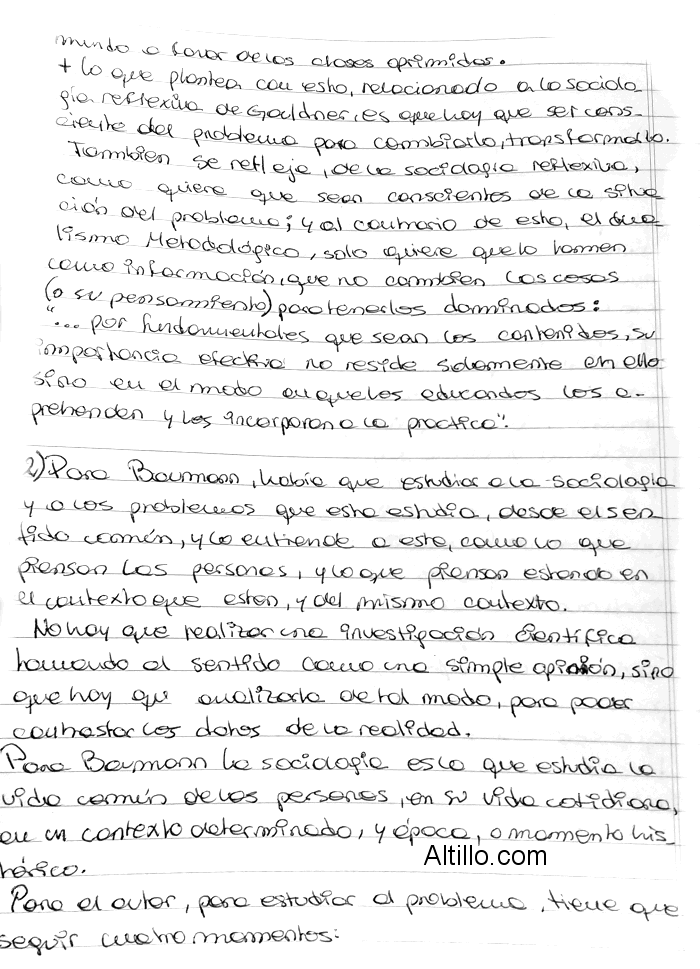 mundo a favor de los clases oprimidas.
+ lo que plantea con esto, relacionado a la sociolo
gía reflexiva de Gouldner, es que hay que ser cons-
ciente del problema para cambiarlo, transformarlo.
También se refleja, de la sociología reflexiva,
como quiere que sean conscientes de la situa
ción del problema; y al contrario de esto, el dua
lismo Metodológico, solo quiere que lo tomen
como información, que no cambien las cosas
(o su pensamiento) para tenerlos dominados:
"... por fundamentales que sean los contenidos, su
importancia efectiva no reside solamente en ello
sino en el modo en que los educandos los a-
prehenden y los incorporan a la practica".
2) Para Baumann, había que estudiar a la sociología
y a los problemas que esta estudia, desde el sen
tido común, y lo entiende a este, como lo que
piensan las personas, y lo que piensan estando en
el contexto que estan, y del mismo contexto.
No hay que realizar una investigación científica
tomando al sentido como una simple opinión, sino
que hay que analizarla de tal modo, para poder
contrastar los datos de la realidad.
Para Baumann la sociología es la que estudia la
vida común de las personas, en su vida cotidiana,
en un contexto determinado, y época, o momento his_
tórico.
Altillo.com
Para el autor, para estudiar al problema, tiene que
seguir cuatro momentos: